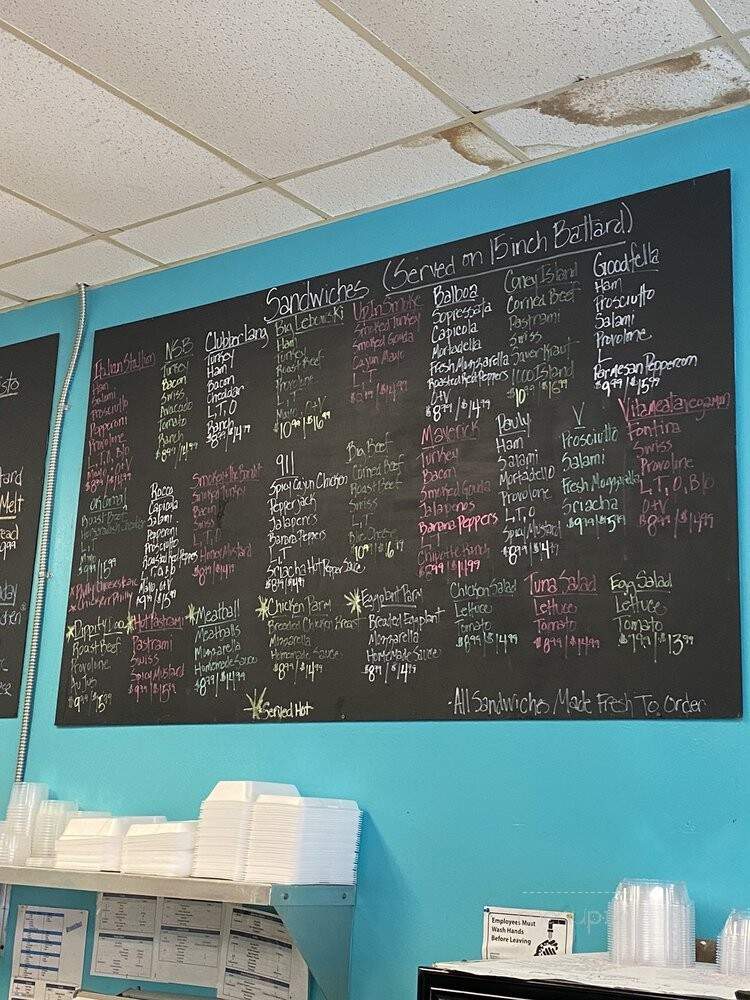 Sandwiches (Served on 15 inch Ballard)
Italian Stallion
Ham
Salami
Prosciutto
Pepperoni
Provolone
L, T, O, B/o
Mayo, O+V
$8.99/$14.99
NSB
Turkey
Bacon
Swiss
Avacado
Tomato
Ranch
$8.99/$14.99
Clubber Lang
Turkey
Ham
Bacon
Cheddar
L,T,O
Ranch
$8.99/$14.99
Big Lebowski
Ham
Turkey
Roast Beef
Provolone
L,T
Mayo, O+V
$10.99/$16.99
Up In Smoke
Smoked Turkey
Smoked Gouda
Cajun Mayo
L, T
$8.99/$14.99
Balboa
Sopressata
Capicola
Mortadella
Fresh Mozzarella
Roasted Red Peppers
O+V
$8.99/$14.99
Coney Island
Corned Beef
Pastrami
Swiss
Sauer Kraut
1000 Island
$10.99/$16.99
Goodfella
Ham
Prosciutto
Salami
Provolone
L
Parmesan Peppercorn
$9.99/$15.99
Roast Beef
Rocco
Capicola
Salami
Pepperoni
Prosciutto
Roasted Red Peppers
Mayo, O+V
$9.99/$15.99
Smokey+the Bandit
Smoked Turkey
Bacon
Swiss
L,T
Honey Mustard
$8.99/$14.99
911
Spicy Cajun Chicken
Pepperjack
Jalapenos
Banana Peppers
L,T
Sriacha Hot Pepper Sauce
$8.99/$14.99
Big Beef
Corned Beef
Roast Beef
Swiss
L,T
Bleu Cheese
$10.99/$16.99
Maverick
Turkey
Bacon
Smoked Gouda
Jalapenos
Banana Peppers
L,T
Chipotle Ranch
$8.99/$14.99
Pauly
Ham
Salami
Mortadella
Provolone
L,T,O
Spicy Mustard
$8.99/$14.99
V
Prosciutto
Salami
Fresh Mozzarella
Sriacha
$9.99/$15.99
Vitameatavegamin
Fontina
Swiss
Provolone
L,T,O,B/o
O+V
$8.99/$14.99
*Philly Cheesesteak
*Chicken Philly
*Dippity Loo
Roast Beef
Provolone
Au Jus
$9.99/$15.99
*Hot Pastrami
Pastrami
Swiss
Spicy Mustard
$9.99/$15.99
*Meatball
Meatballs
Mozzarella
Homemade Sauce
$8.99/$14.99
*Chicken Parm
Breaded Chicken Breast
Mozzarella
Homemade Sauce
$8.99/$14.99
*Eggplant Parm
Breaded Eggplant
Mozzarella
Homemade Sauce
$8.99/$14.99
Chicken Salad
Lettuce
Tomato
$8.99/$14.99
Tuna Salad
Lettuce
Tomato
$8.99/$14.99
Egg Salad
Lettuce
Tomato
$7.99/$13.99
*Served Hot
-All Sandwiches Made Fresh To Order
Melt
Employees Must
Wash Hands
Before Leaving